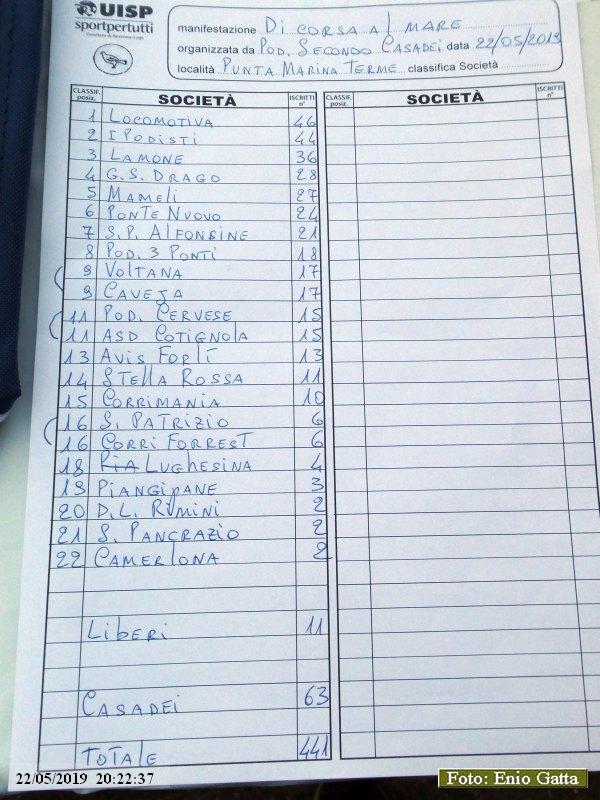 UISP
sportpertutti
manifestazione DI CORSA AL MARE
organizzata da POD. SECONDO CASADEI data 22/05/2019
località PUNTA MARINA TERME classifica Società
CLASSIF. posiz. SOCIETÀ ISCRITTI n° CLASSIF. posiz. SOCIETÀ ISCRITTI n°
1 LOCOMOTIVA 46
2 I PODISTI 44
3 LAMONE 36
4 G.S. DRAGO 28
5 MAMELI 27
6 PONTE NUOVO 24
7 S.P. ALFONSINE 21
8 POD. 3 PONTI 18
9 VOLTANA 17
9 CAVEJA 17
11 POD. CERVESE 15
11 ASD COTIGNOLA 15
13 AVIS FORLÌ 13
14 STELLA ROSSA 11
15 CORRIMANIA 10
16 S. PATRIZIO 6
16 CORRI FORREST 6
18 LUGHESINA 4
19 PIANGIPANE 3
20 D.L. RIMINI 2
21 S. PANCRAZIO 2
22 CAMERLONA 2
LIBERI 11
CASADEI 63
TOTALE 441
22/05/2019 20:22:37
Foto: Enio Gatta